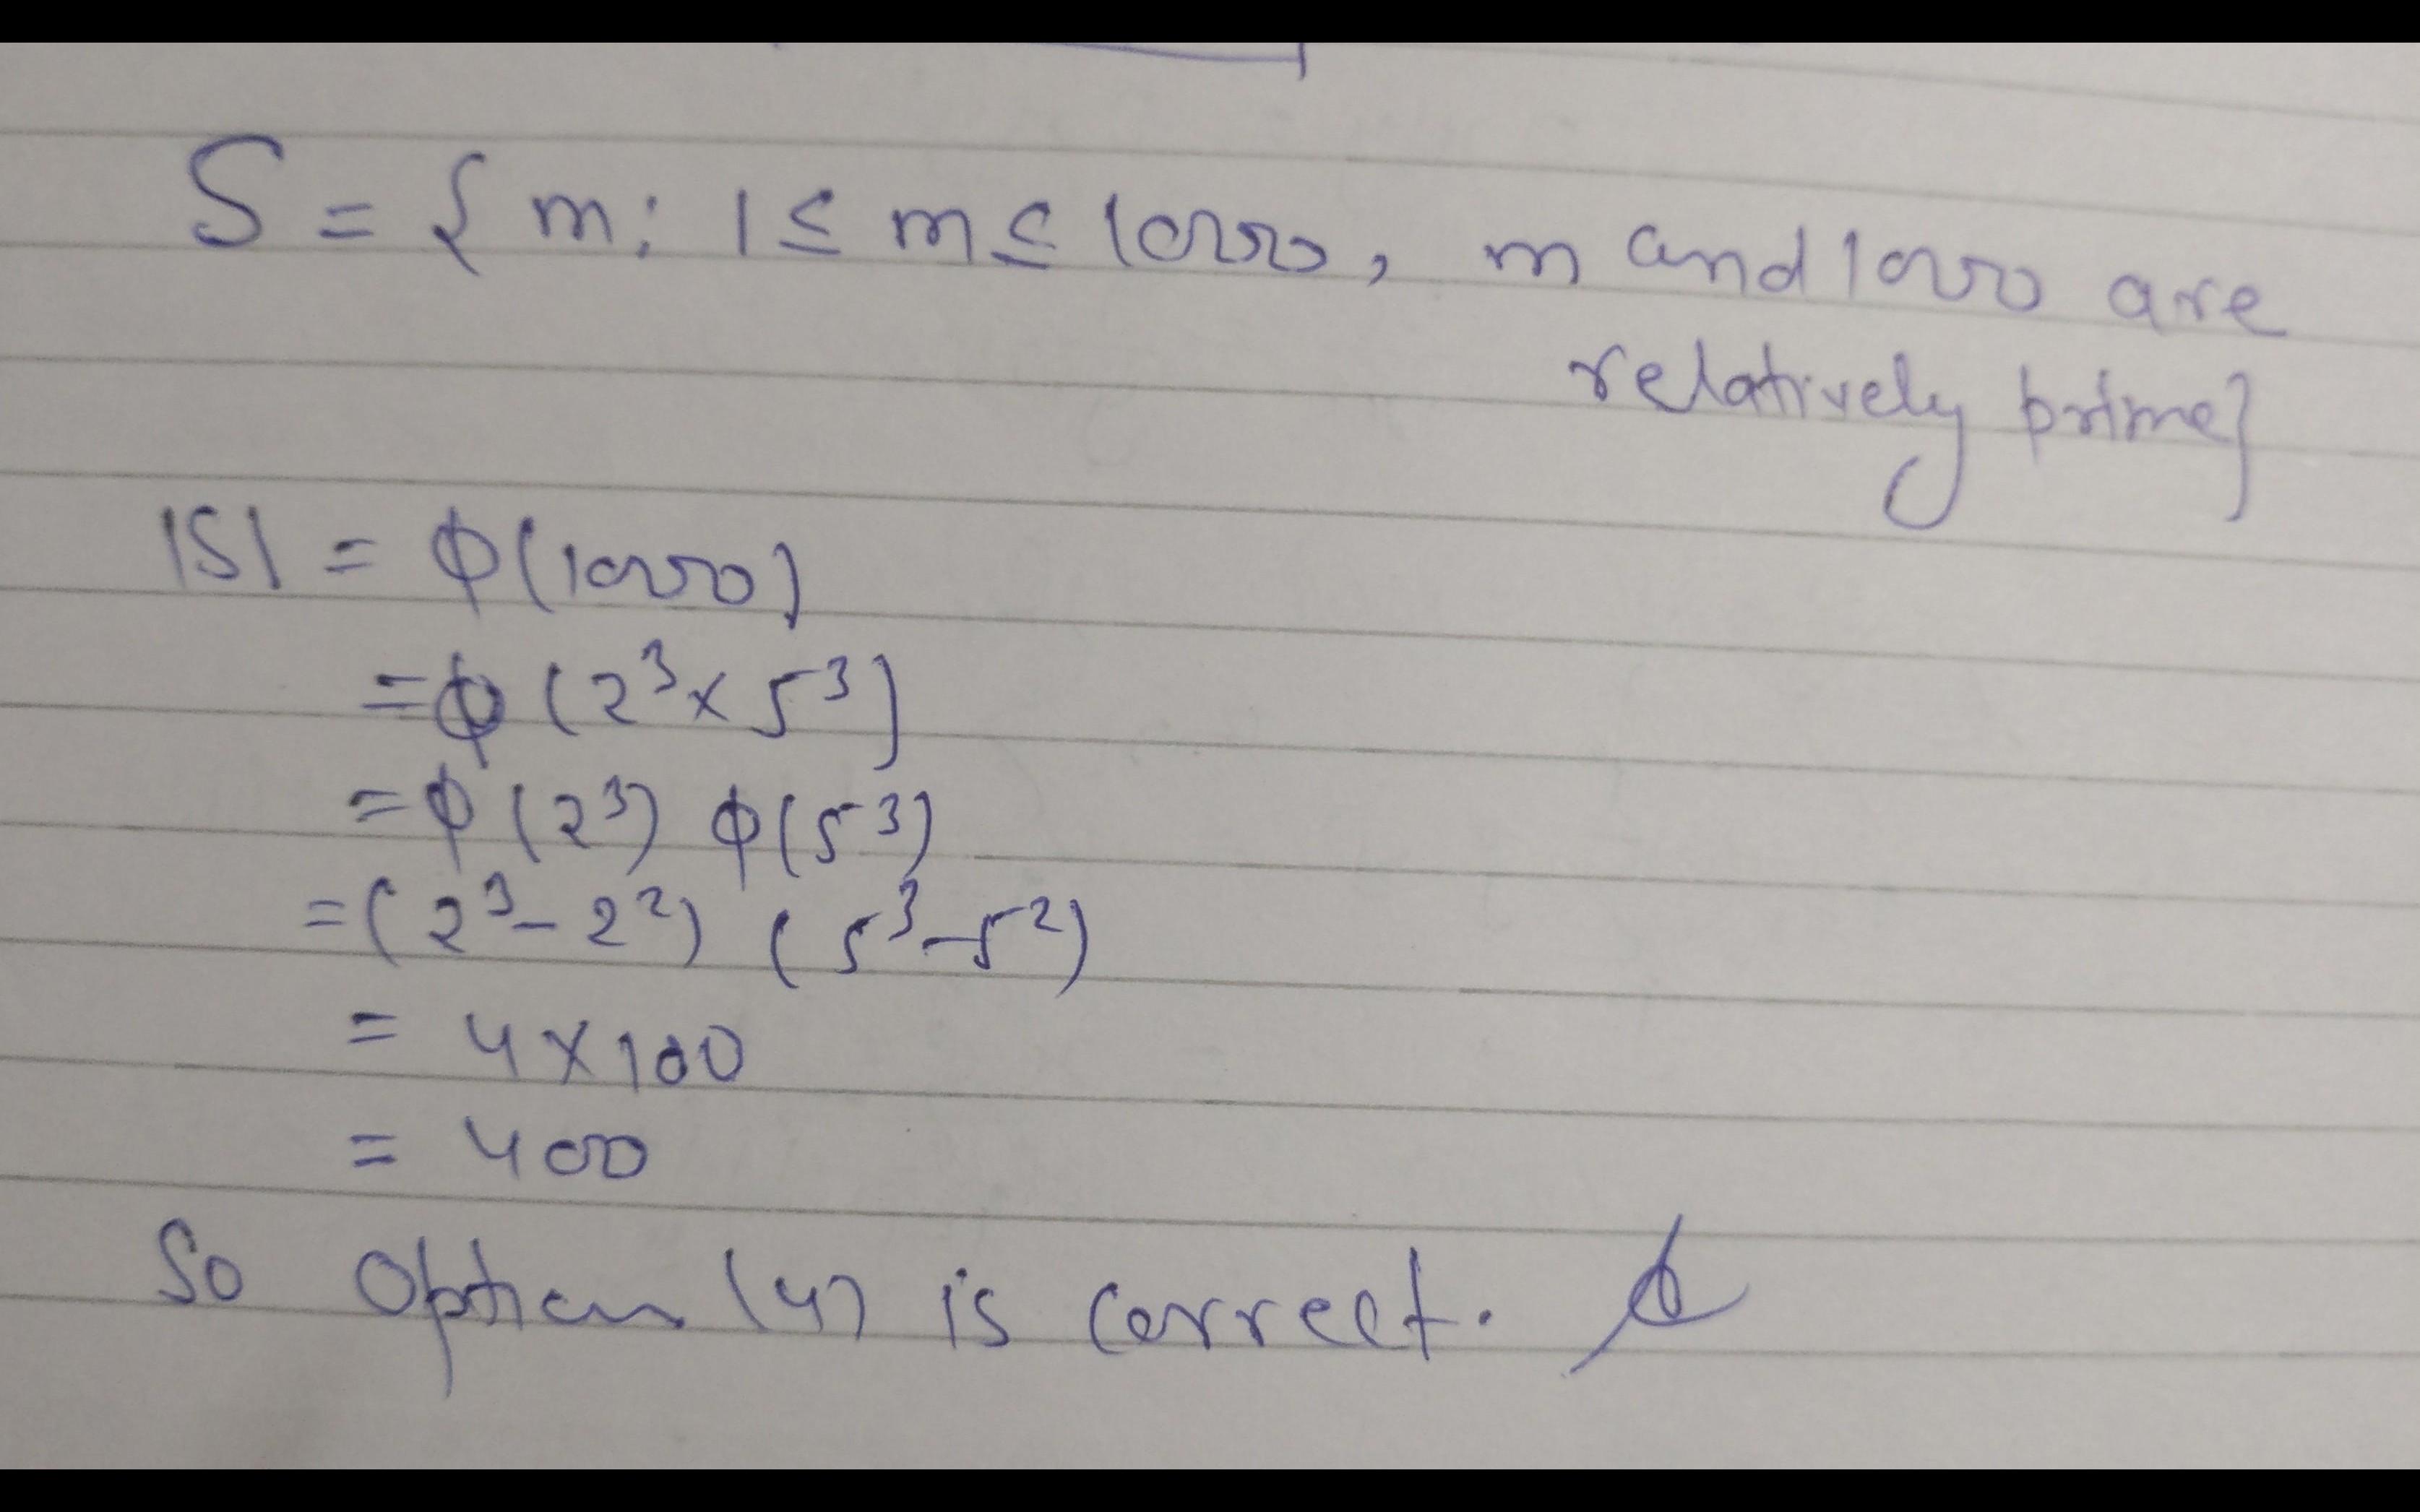 S = { m : 1 ≤ m ≤ 1000, m and 1000 are
relatively prime}
|S| = ϕ(1000)
= ϕ (2³ × 5³)
= ϕ (2³) ϕ(5³)
= (2³ - 2²) (5³ - 5²)
= 4 × 100
= 400
So Option (4) is correct.